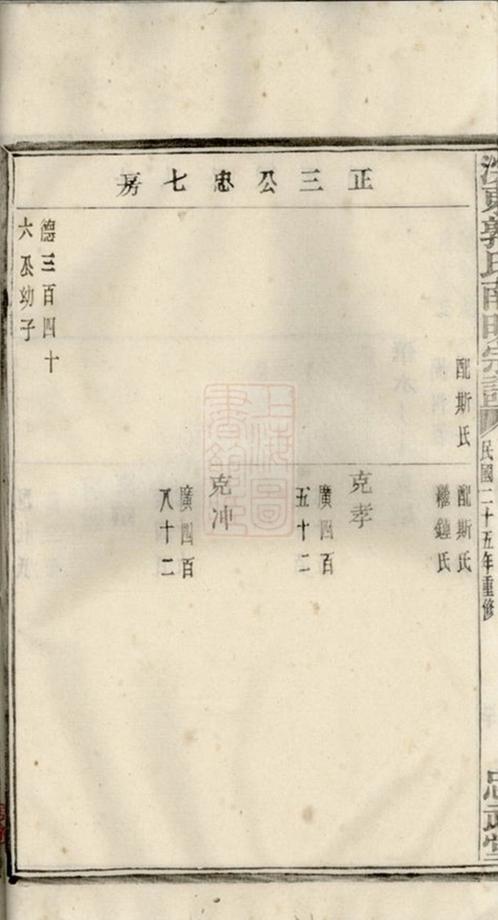 正三公忠七房
民國二十五年重修
配斯氏
配斯氏
繼鍾氏
克孝
廣四百
五十二
克冲
廣四百
八十二
德三百四十
六公幼子
上海圖書館藏